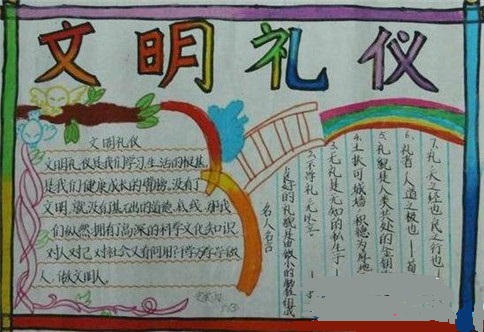 文明礼仪
文明礼仪
文明礼仪是我们学习、生活的根基,
是我们健康成长的臂膀。没有了
文明,就没有基本的道德底线,那我
们纵然拥有高深的科学文化知识,
对人对己对社会又有何用?千万学学做
人,做文明人。
名人名言
良好的礼貌是由微小的
2、不学礼,无以立
3、无礼是无知的私生子
4、土扶可城墙,积德为厚地
5、礼貌是人类共处的金钥
6、礼者,人道之极也——荀
7、礼,天之经也,民之行也